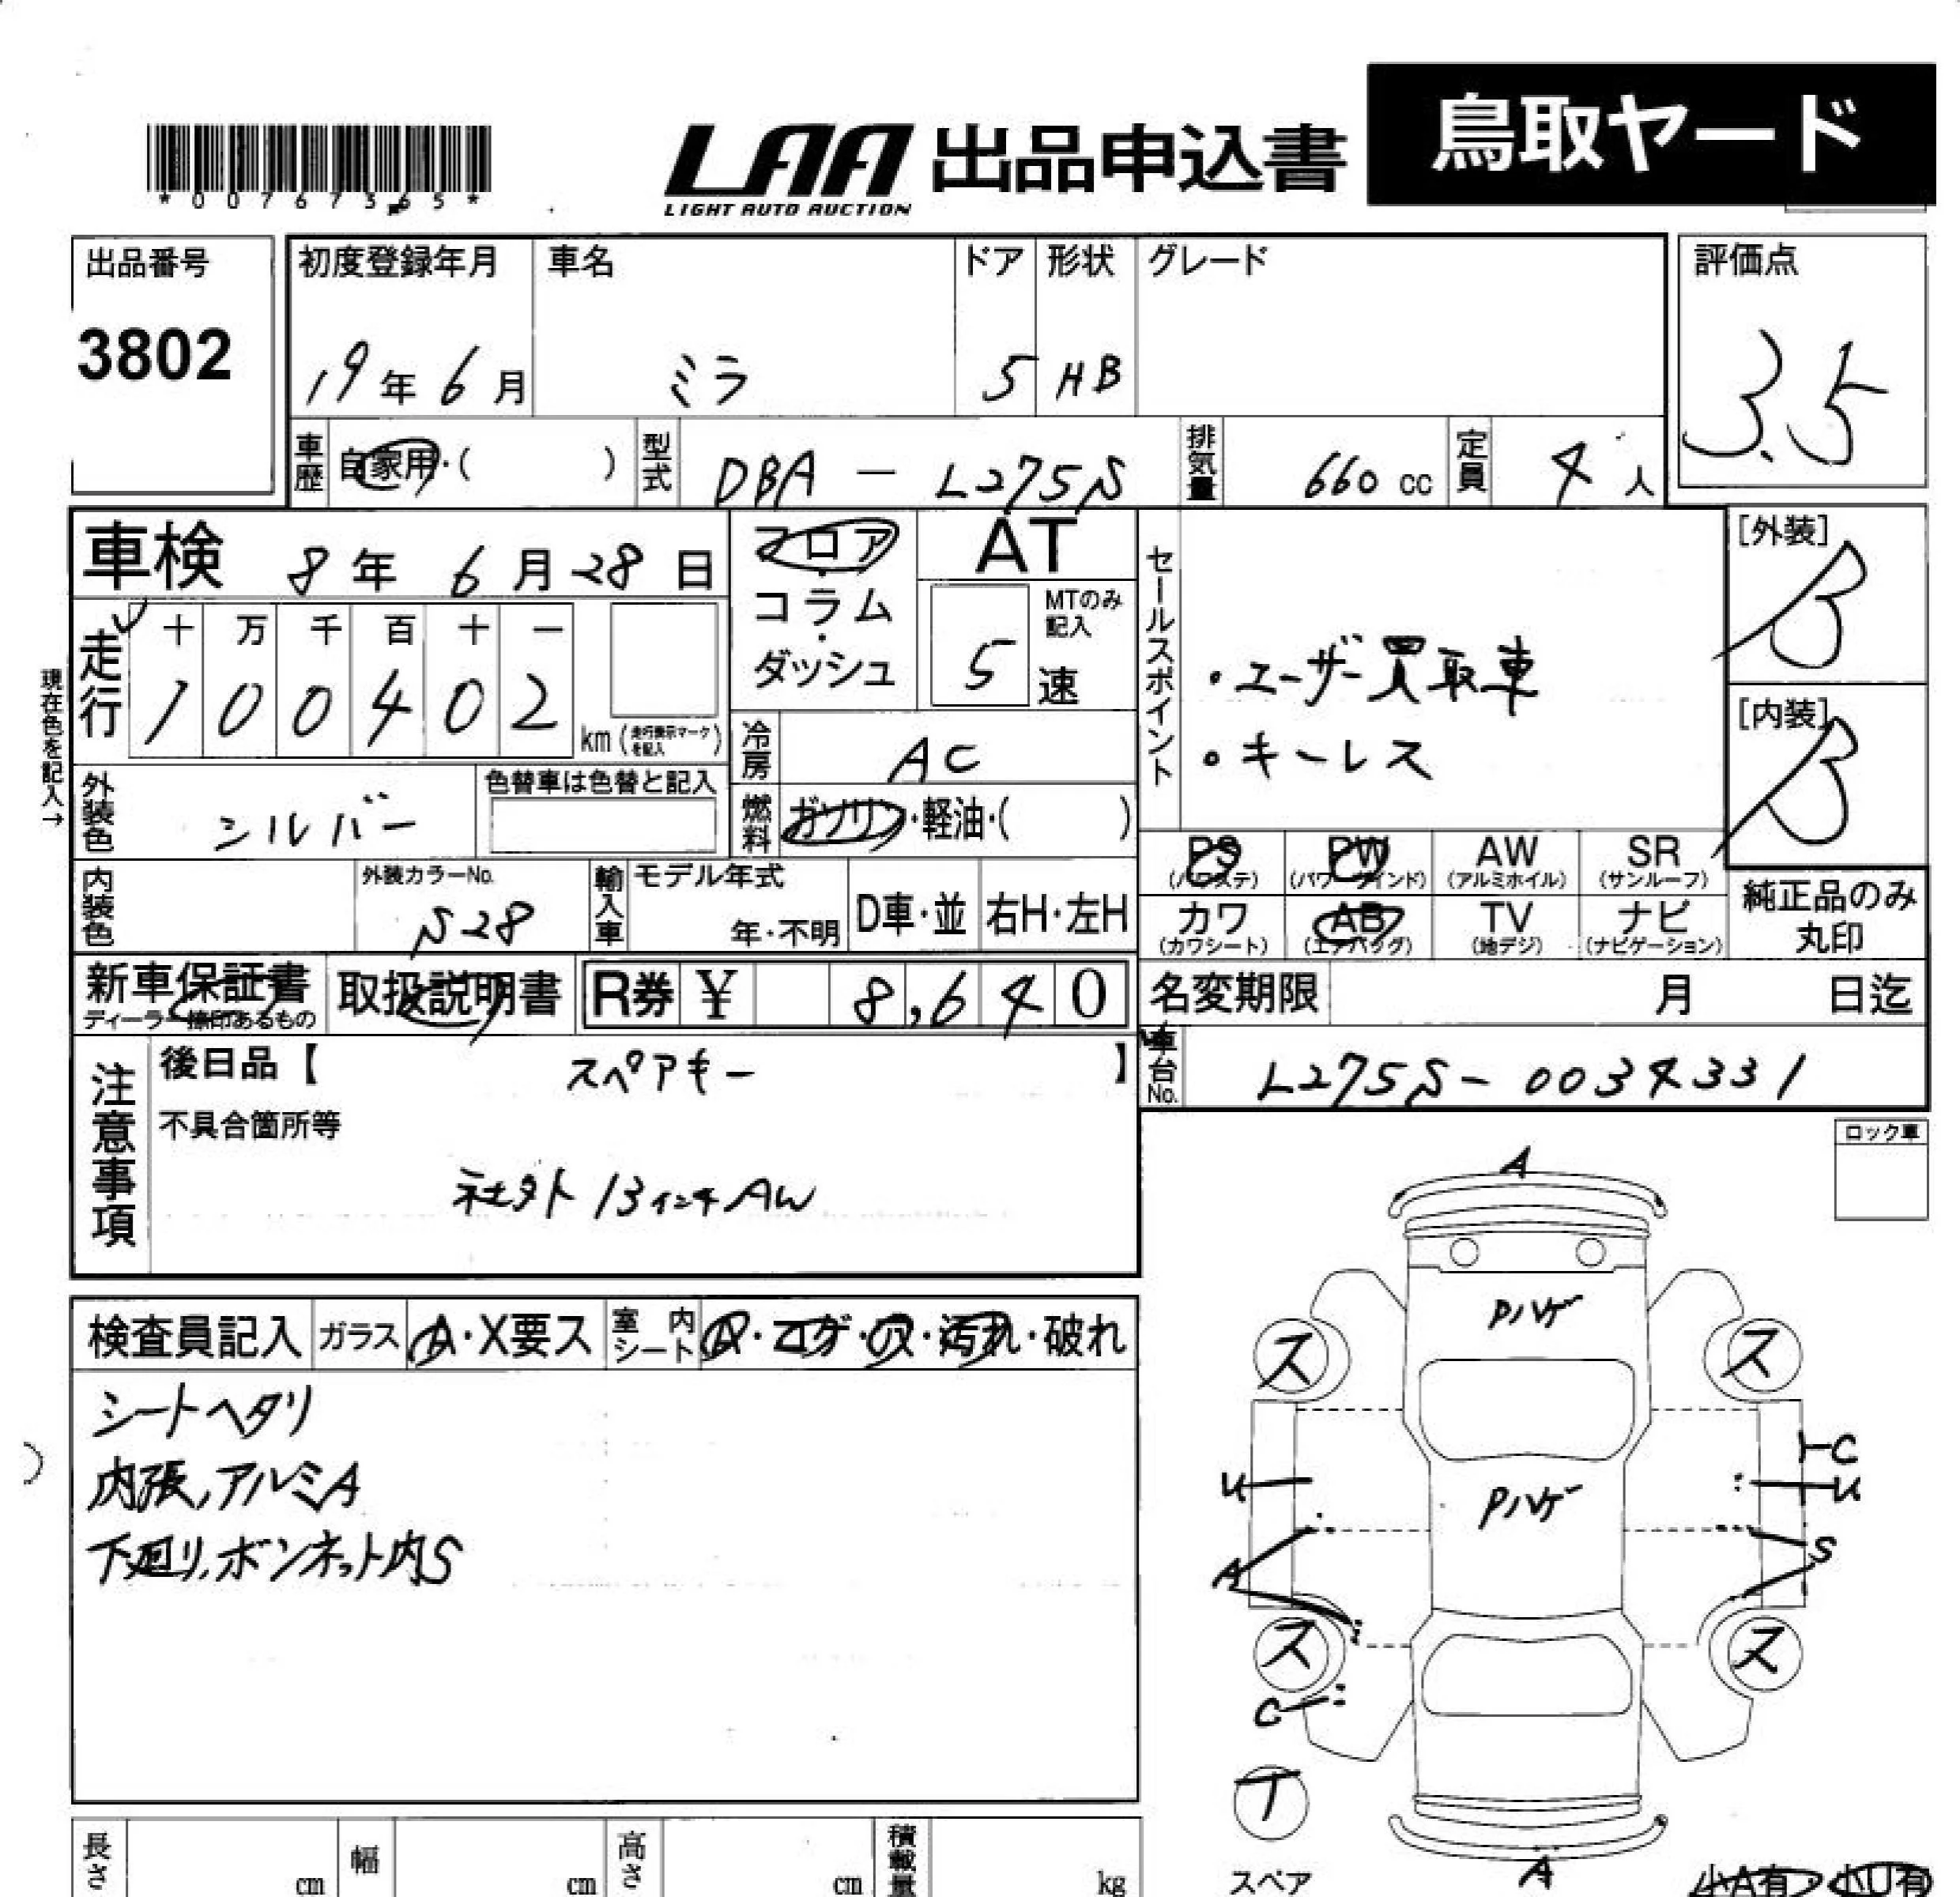 鳥取ヤード
LAA 出品申込書
LIGHT AUTO AUCTION
*00767365*
出品番号
3802
初度登録年月 車名 ドア 形状 グレード
19年6月 ミラ 5 HB
評価点
3.5
車歴 自家用・( ) 型式 DBA - L275S 排気量 660 cc 定員 4 人
車検 8年 6月 28日
フロア・コラム・ダッシュ
AT
MTのみ記入
5 速
現在色を記入→
走行 十 万 千 百 十 一
1 0 0 4 0 2 km (走行表示マークを記入)
冷房 AC
燃料 ガソリン・軽油・( )
外装色 シルバー
色替車は色替と記入
内装色
外装カラーNo.
S28
輸入車 モデル年式 年・不明 D車・並 右H・左H
セールスポイント
・ユーザー買取車
・キーレス
[外装]
B
[内装]
B
PS PW AW SR
(パワステ) (パワーウィンド) (アルミホイル) (サンルーフ)
カワ AB TV ナビ
(カワシート) (エアバッグ) (地デジ) (ナビゲーション)
純正品のみ
丸印
新車保証書 取扱説明書 R券 ¥ 8,640
ディーラー捺印あるもの
名変期限 月 日迄
車台No. L275S-0034331
注意事項
後日品【 スペアキー 】
不具合箇所等
社外13インチAW
ロック車
検査員記入 ガラス A・X要ス 室内シート A・コゲ・穴・汚れ・破れ
シートヘタリ
内張,アルミA
下廻り,ボンネット内S
A
Pハゲ
ス ス
C
U U
Pハゲ
S
A
ス ス
C
T
スペア
A
小A有 小U有
長さ cm 幅 cm 高さ cm 積載量 kg